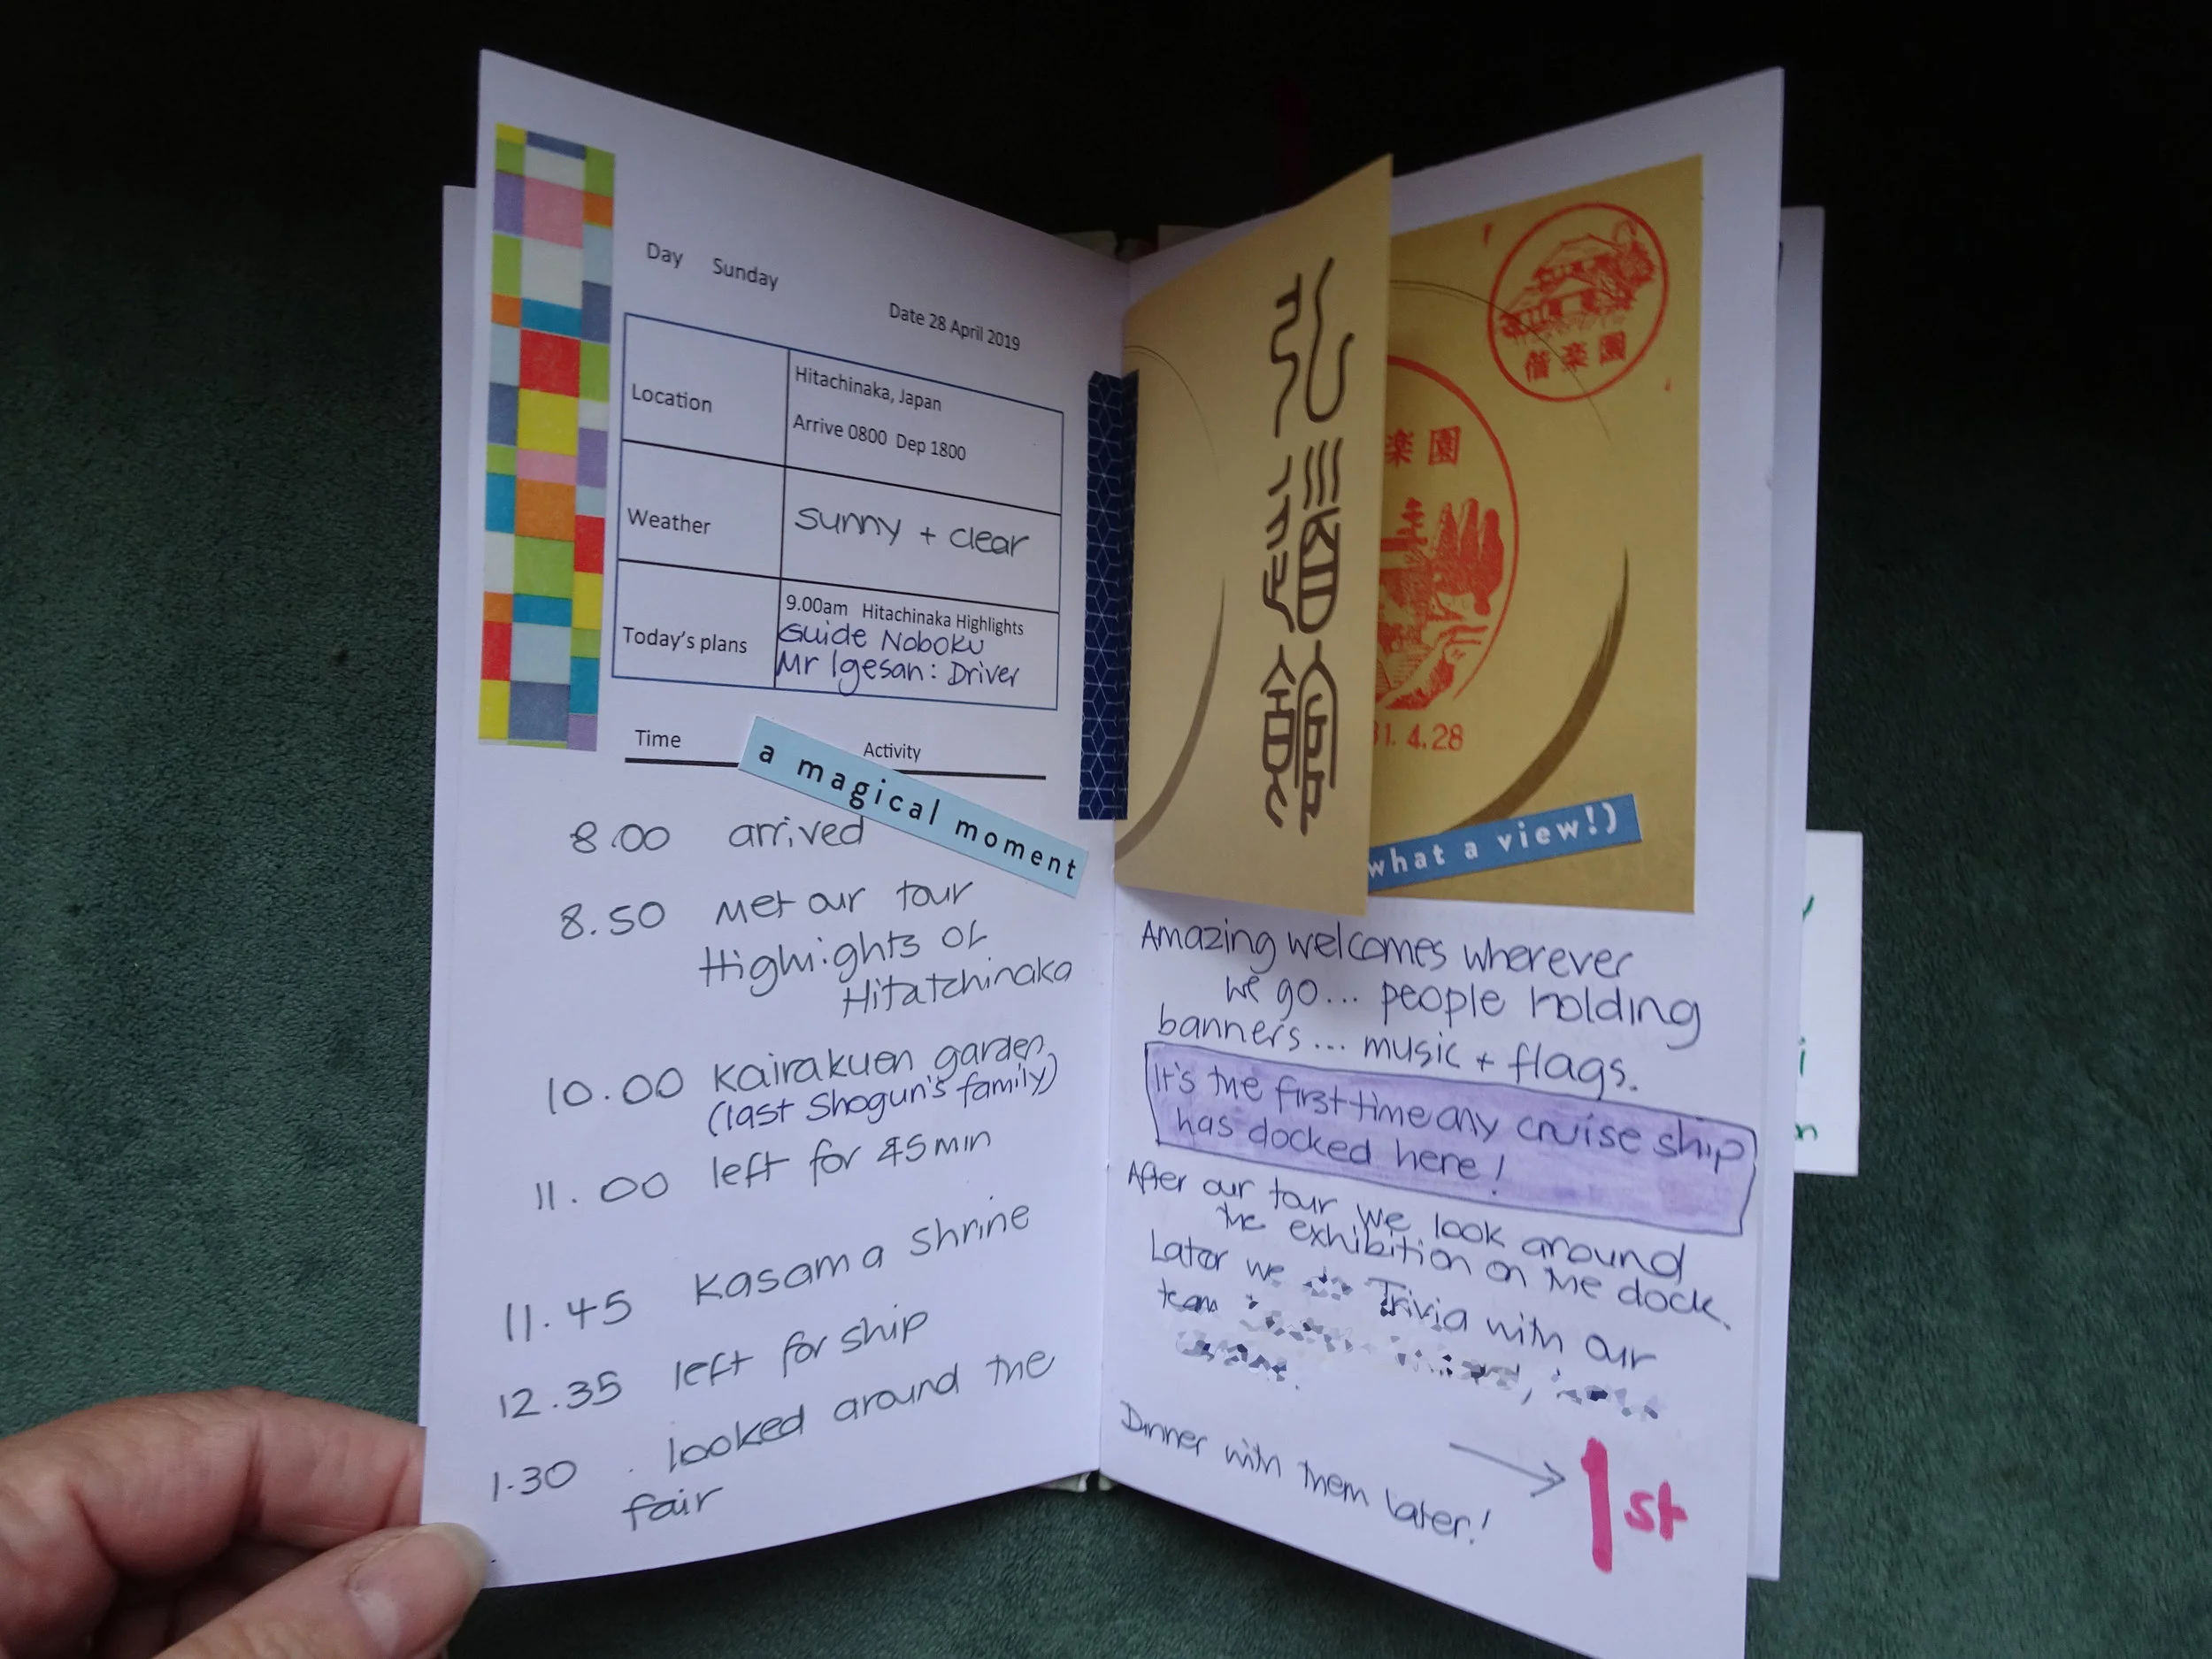 Day Sunday
Date 28 April 2019
Location
Hitachinaka, Japan
Arrive 0800 Dep 1800
Weather
sunny + clear
Today's plans
9.00am Hitachinaka Highlights
Guide Noboku
Mr Igesan: Driver
Time
Activity
a magical moment
8.00 arrived
8.50 Met our tour
Highlights of
Hitatchinaka
10.00 Kairakuen garden
(last Shogun's family)
11.00 left for 45min
11.45 Kasama shrine
12.35 left for ship
1.30 looked around the
fair
弘道館
偕楽園
楽園
31.4.28
what a view!)
Amazing welcomes wherever
we go... people holding
banners... music + flags.
It's the first time any cruise ship
has docked here!
After our tour we look around
the exhibition on the dock.
Later we do Trivia with our
team
Dinner with them later!
1st